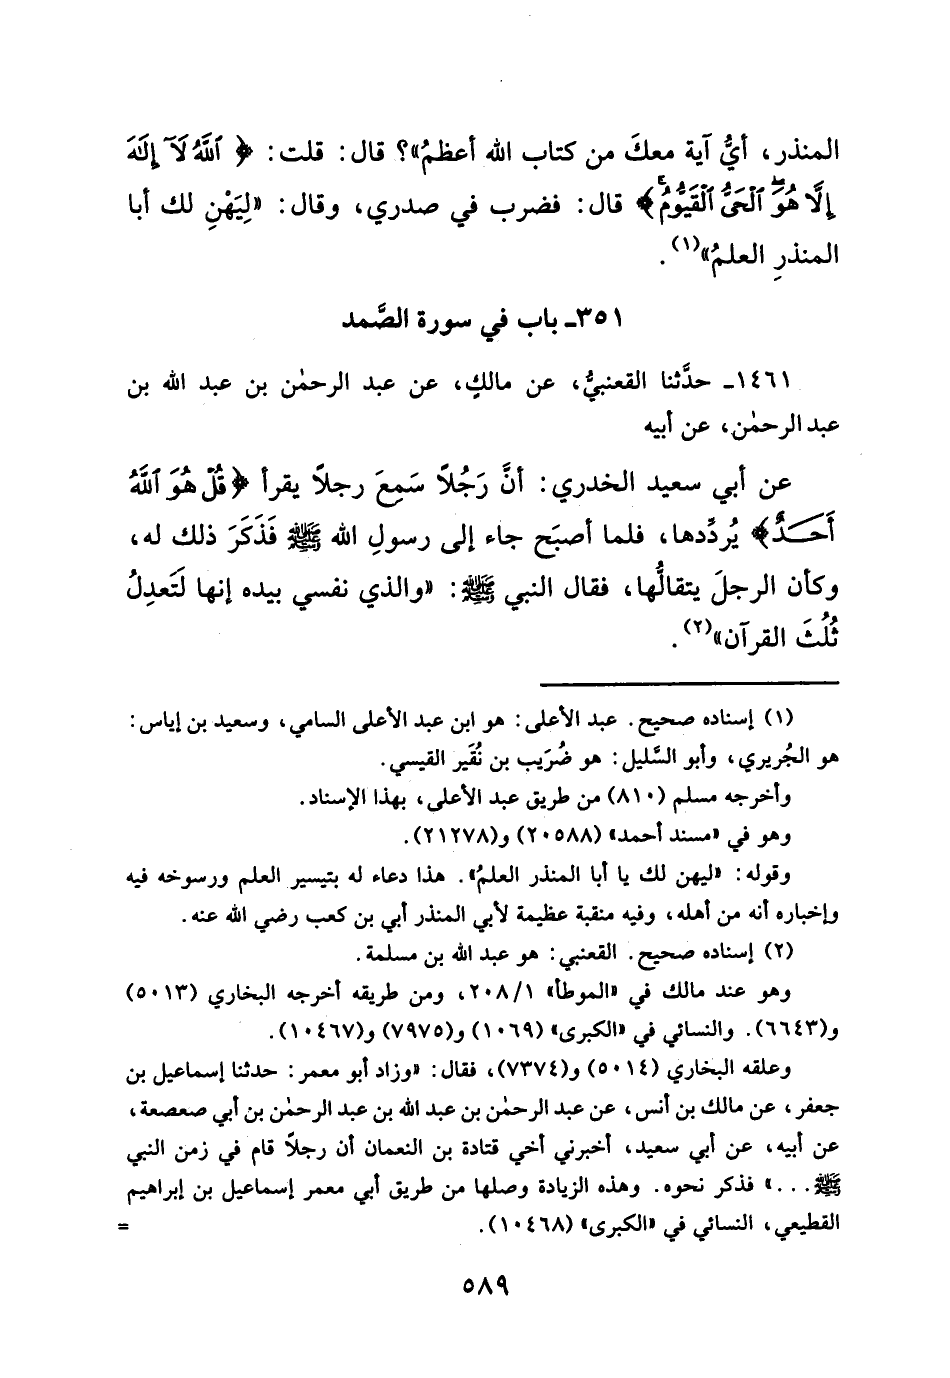 المنذر، أيُّ آية معكَ من كتاب الله أعظمُ»؟ قال: قلت: ﴿ ٱللَّهُ لَآ إِلَٰهَ
إِلَّا هُوَ ٱلْحَىُّ ٱلْقَيُّومُ ﴾ قال: فضرب في صدري، وقال: «لِيَهْنِ لك أبا
المنذرِ العلمُ»(١).
٣٥١ـ باب في سورة الصَّمد
١٤٦١ـ حدَّثنا القعنبيُّ، عن مالكٍ، عن عبد الرحمٰن بن عبد الله بن
عبد الرحمٰن، عن أبيه
عن أبي سعيد الخدري: أنَّ رَجُلاً سَمِعَ رجلاً يقرأ ﴿ قُلْ هُوَ ٱللَّهُ
أَحَدٌ ﴾ يُردِّدها، فلما أصبَح جاء إلى رسولِ الله ﷺ فَذَكَرَ ذلك له،
وكأن الرجلَ يتقالُّها، فقال النبي ﷺ: «والذي نفسي بيده إنها لَتَعدِلُ
ثُلُثَ القرآن»(٢).
(١) إسناده صحيح. عبد الأعلى: هو ابن عبد الأعلى السامي، وسعيد بن إياس:
هو الجُريري، وأبو السَّليل: هو ضُرَيب بن نُقَير القيسي.
وأخرجه مسلم (٨١٠) من طريق عبد الأعلى، بهذا الإسناد.
وهو في «مسند أحمد» (٢٠٥٨٨) و(٢١٢٧٨).
وقوله: «ليهن لك يا أبا المنذر العلمُ». هذا دعاء له بتيسير العلم ورسوخه فيه
وإخباره أنه من أهله، وفيه منقبة عظيمة لأبي المنذر أبي بن كعب رضي الله عنه.
(٢) إسناده صحيح. القعنبي: هو عبد الله بن مسلمة.
وهو عند مالك في «الموطأ» ٢٠٨/١، ومن طريقه أخرجه البخاري (٥٠١٣)
و(٦٦٤٣). والنسائي في «الكبرى» (١٠٦٩) و(٧٩٧٥) و(١٠٤٦٧).
وعلقه البخاري (٥٠١٤) و(٧٣٧٤)، فقال: «وزاد أبو معمر: حدثنا إسماعيل بن
جعفر، عن مالك بن أنس، عن عبد الرحمٰن بن عبد الله بن عبد الرحمٰن بن أبي صعصعة،
عن أبيه، عن أبي سعيد، أخبرني أخي قتادة بن النعمان أن رجلاً قام في زمن النبي
ﷺ...» فذكر نحوه. وهذه الزيادة وصلها من طريق أبي معمر إسماعيل بن إبراهيم
القطيعي، النسائي في «الكبرى» (١٠٤٦٨). =
٥٨٩